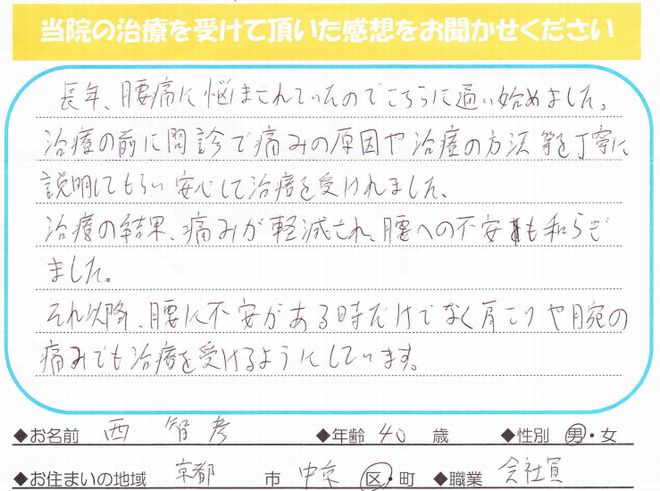 当院の治療を受けて頂いた感想をお聞かせください
長年、腰痛に悩まされていたのでこちらに通い始めました。
治療の前に問診で痛みの原因や治療の方法等を丁寧に
説明してもらい安心して治療を受けれました。
治療の結果、痛みが軽減され、腰への不安も和らぎ
ました。
それ以降、腰に不安がある時だけでなく肩こりや腕の
痛みでも治療を受けるようにしています。
◆お名前 西 智彦 ◆年齢 40 歳 ◆性別 男・女
◆お住まいの地域 京都 市 中京 区・町 ◆職業 会社員